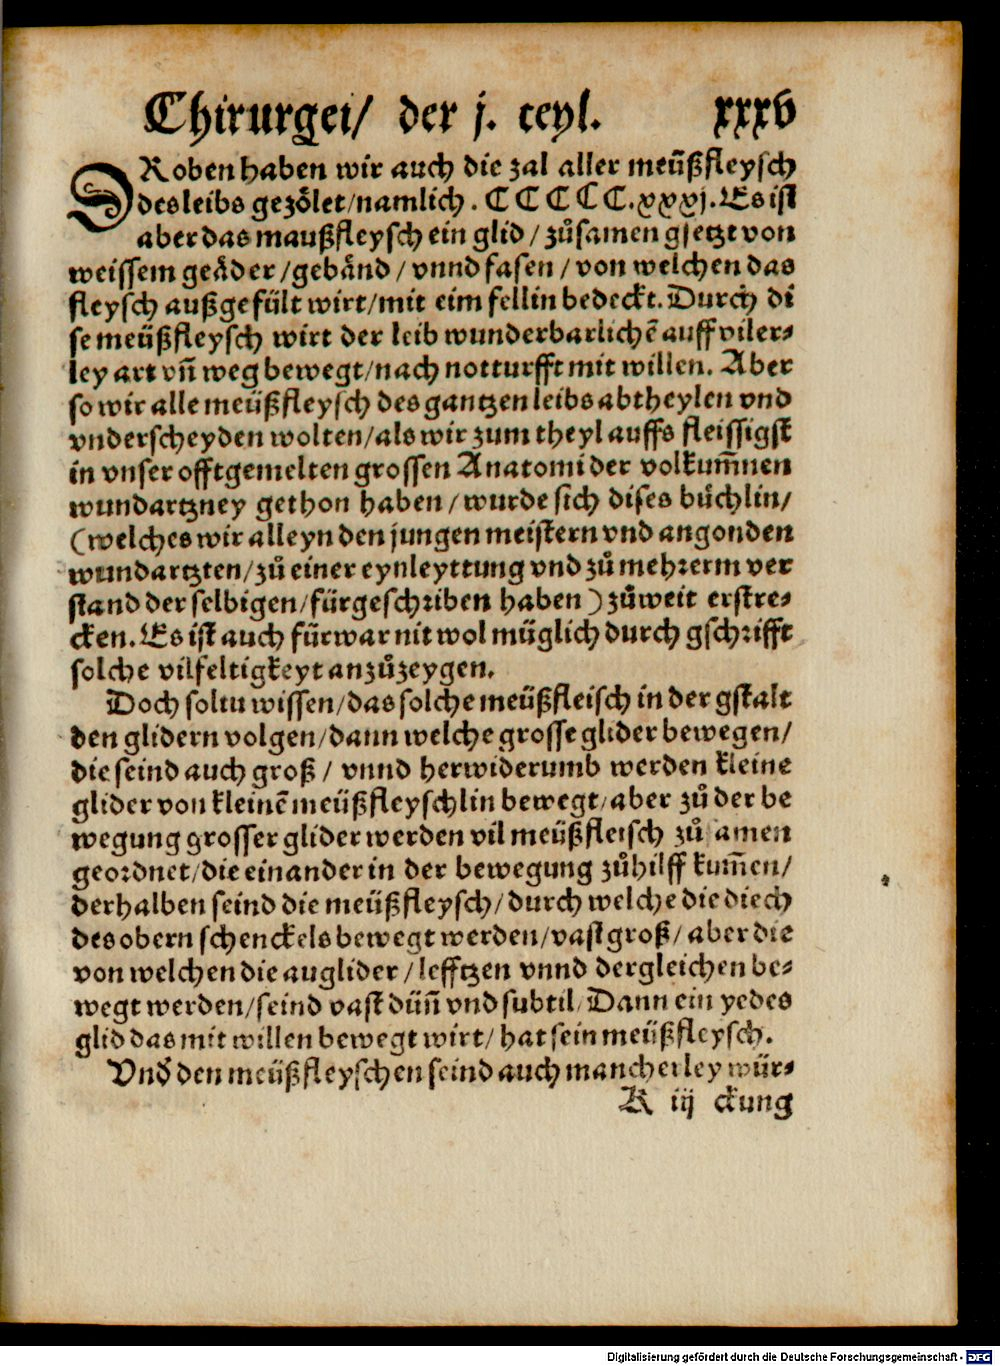 Chirurgei/ der j. teyl. xxxv
DRoben haben wir auch die zal aller meüßfleysch
des leibs gezölet/namlich. CCCCC.xxxj. Es ist
aber das maußfleysch ein glid / zůsamen gsetzt von
weissem geäder /gebänd / vnnd fasen / von welchen das
fleysch außgefült wirt/mit eim fellin bedeckt. Durch di
se meüßfleysch wirt der leib wunderbarlichē auff viler⸗
ley art vñ weg bewegt/nach notturfft mit willen. Aber
so wir alle meüßfleysch des gantzen leibs abtheylen vnd
vnderscheyden wolten/als wir zum theyl auffs fleissigst
in vnser offtgemelten grossen Anatomi der volkum̄nen
wundartzney gethon haben /wurde sich dises büchlin/
(welches wir alleyn den jungen meistern vnd angonden
wundartzten/zů einer eynleyttung vnd zů mehrerm ver
stand der selbigen/fürgeschriben haben) zůweit erstre⸗
cken. Es ist auch fürwar nit wol müglich durch gschrifft
solche vilfeltigkeyt anzůzeygen.
Doch soltu wissen/das solche meüßfleisch in der gstalt
den glidern volgen/dann welche grosse glider bewegen/
die seind auch groß / vnnd herwiderumb werden kleine
glider von kleinē meüßfleyschlin bewegt/aber zů der be
wegung grosser glider werden vil meüßfleisch zů amen
geordnet/die einander in der bewegung zůhilff kum̄en/
derhalben seind die meüßfleysch/durch welche die diech
des obern schenckels bewegt werden/vast groß/ aber die
von welchen die auglider /lefftzen vnnd dergleichen be⸗
wegt werden/seind vast düñ vnd subtil/Dann ein yedes
glid das mit willen bewegt wirt/ hat sein meüßfleysch.
Vnd den meüßfleyschen seind auch mancherley wür⸗
K iij ckung
Digitalisierung gefördert durch die Deutsche Forschungsgemeinschaft - DFG